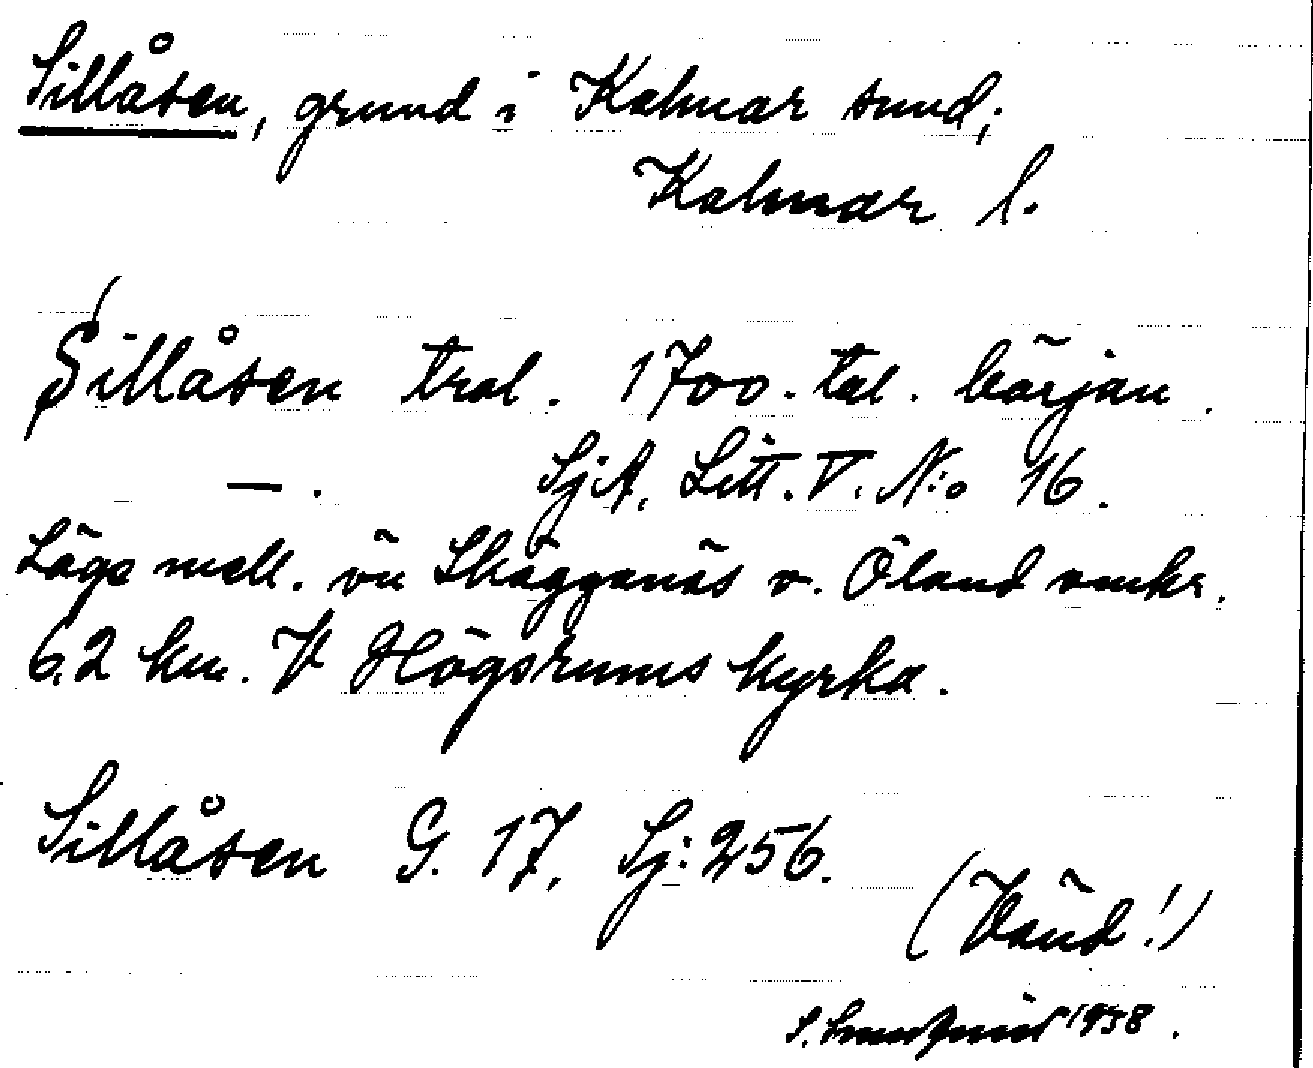 Sillåsen, grund i Kalmar sund;
Kalmar l.
Sillåsen trol. 1700-tal. början.
—. SjA, Litt. V. N:o 16.
Läge mell. ön Skäggenäs o. Öland omkr.
6,2 km. V Högsrums kyrka.
Sillåsen G. 17, Sj: 256.
(Vänd!)
S. 1938.